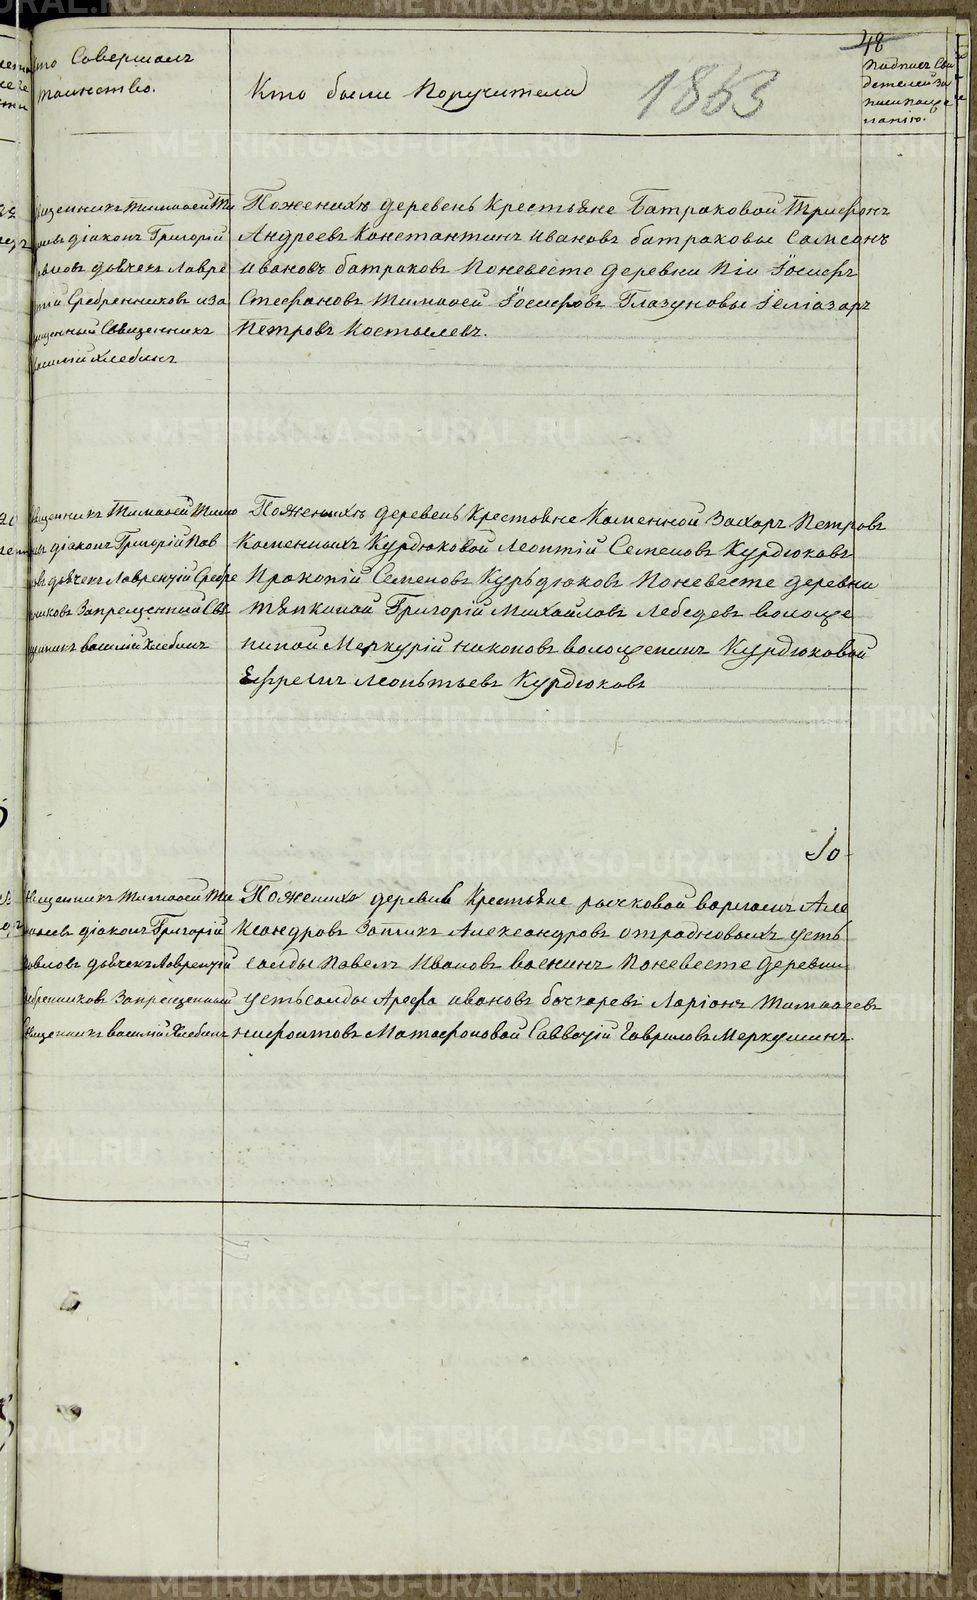 48
Кто Совершалъ
таинство.
Кто были Поручители
1863
Подпись Сви
детелей за
писи по же
ланію.
Священникъ Тимофей Ти
діаконъ Григорій
дьячекъ Лавре
тій Сребренниковъ и за
прещенный Священникъ
Василій Хлебинъ
Пожениху деревень Крестьяне Батраковой Трифонъ
Андреевъ Константинъ Ивановъ батраковы Самсонъ
Ивановъ батраковъ Поневесте деревни Піи Іосифъ
Стефановъ Тимофей Іосифовъ Глазуновы Іеліазаръ
Петровъ Костылевъ.
Священникъ Тимофей Тимо
діаконъ Григорій Пав
овъ дьячекъ Лаврентій Сребре
никовъ Запрещенный Свя
щенникъ василій Хлебинъ
Пожениху деревень Крестьяне Каменной Захаръ Петровъ
Каменныхъ Курдюковой Леонтій Семеновъ Курдюковъ
Прокопій Семеновъ Курьдюковъ Поневесте деревни
Тяпкиной Григорій Михайловъ Лебедевъ волоще
ниной Меркурій никоновъ волощенинъ Курдюковой
Ефремъ Леонтьевъ Курдюковъ
Священникъ Тимофей Ти
мофеевъ діаконъ Григорій
Павловъ дьячекъ Лаврентій
Сребренниковъ Запрещенный
Священникъ василій Хлебинъ
Пожениху деревни Крестьяне рычковой варламъ Але
ксандровъ Заликъ Александровъ отрадновыхъ усть
салды Павелъ Ивановъ васнинъ Поневесте деревни
устьсалды Арефа ивановъ бочкаревъ Ларіонъ Тимофеевъ
нифонтовъ Матафоновой Савватій Гавриловъ Меркушинъ.
METRIKI.GASO-URAL.RU